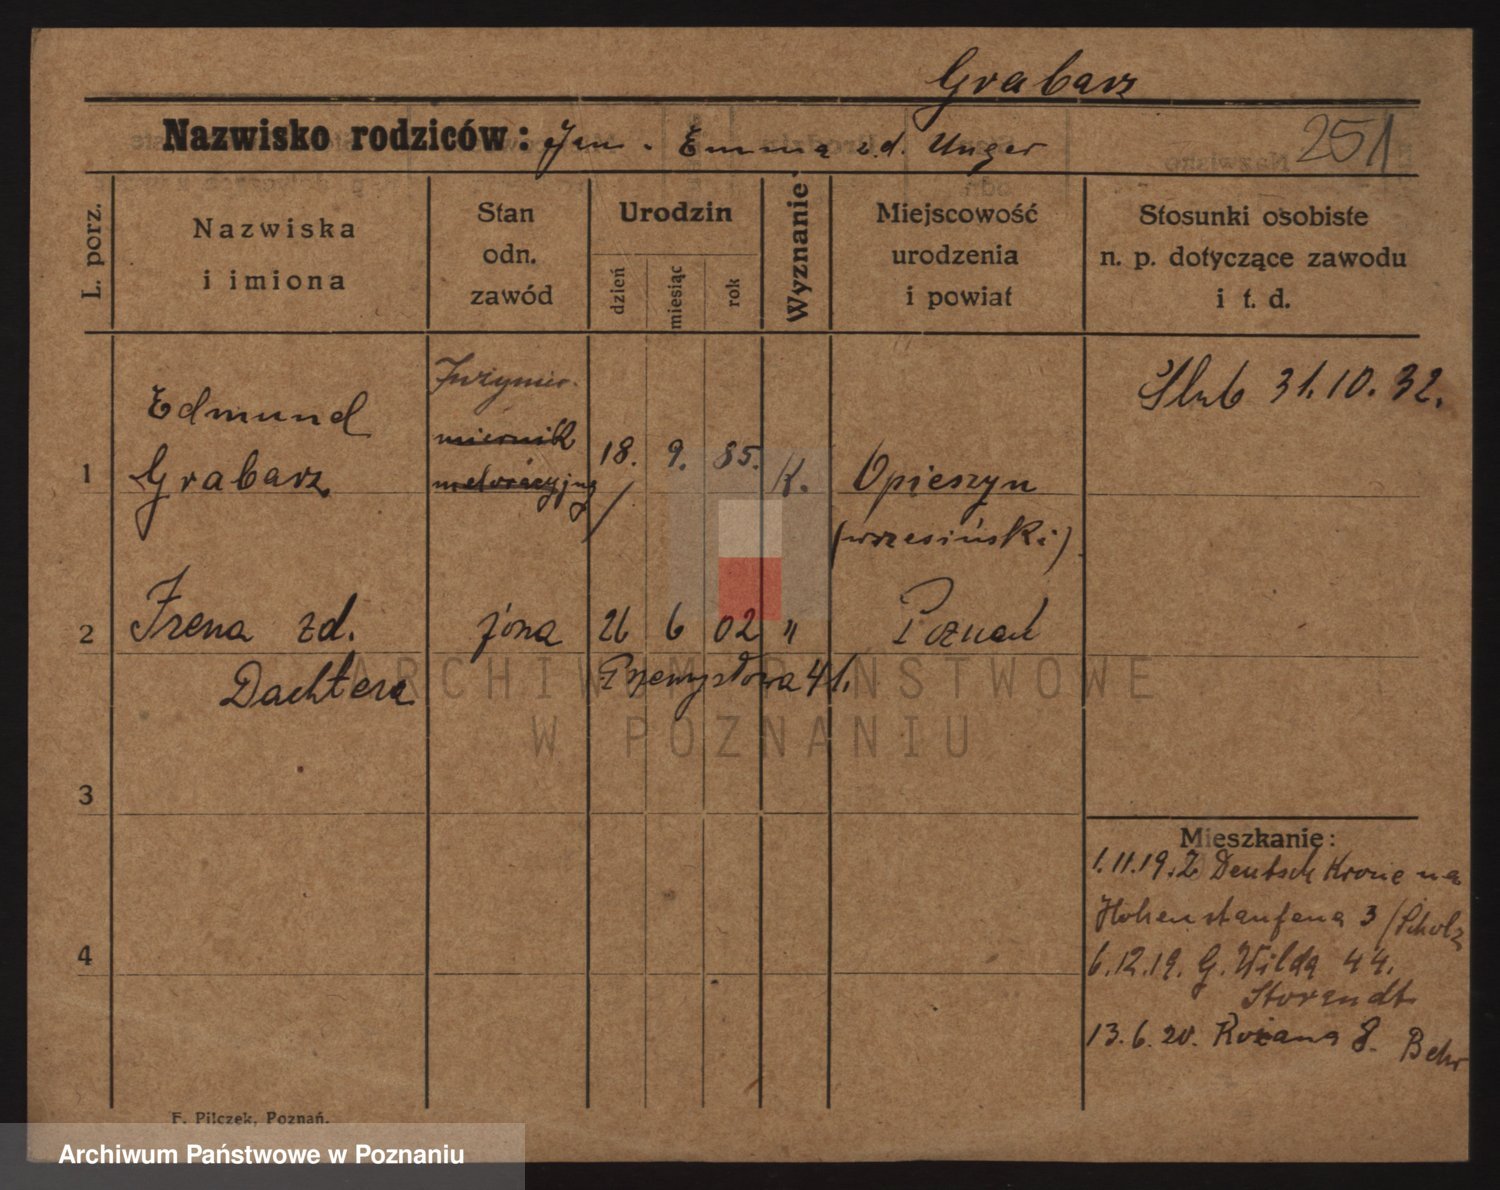 Grabarz
Nazwisko rodziców: Jan. Emma z.d. Unger
251
L. porz.
Nazwiska
i imiona
Stan
odn.
zawód
Urodzin
dzień
miesiąc
rok
Wyznanie
Miejscowość
urodzenia
i powiat
Stosunki osobiste
n. p. dotyczące zawodu
i t. d.
1
Edmund
Grabarz
Inżynier.
miernik
melioracyjny
18. 9. 85.
K.
Opieszyn
(wrzesiński)
Ślub 31.10.32.
2
Irena zd.
Dachtera
żona
26 6 02 "
Poznań
Przemysłowa 41.
3
4
Mieszkanie:
1.11.19. Z Deutsch Krone na
Hohenstaufena 3 /Scholz
6.12.19. G. Wilda 44.
13.6.20. Różana 8. Behr
F. Pilczek, Poznań.
ARCHIWUM PAŃSTWOWE
W POZNANIU
Archiwum Państwowe w Poznaniu